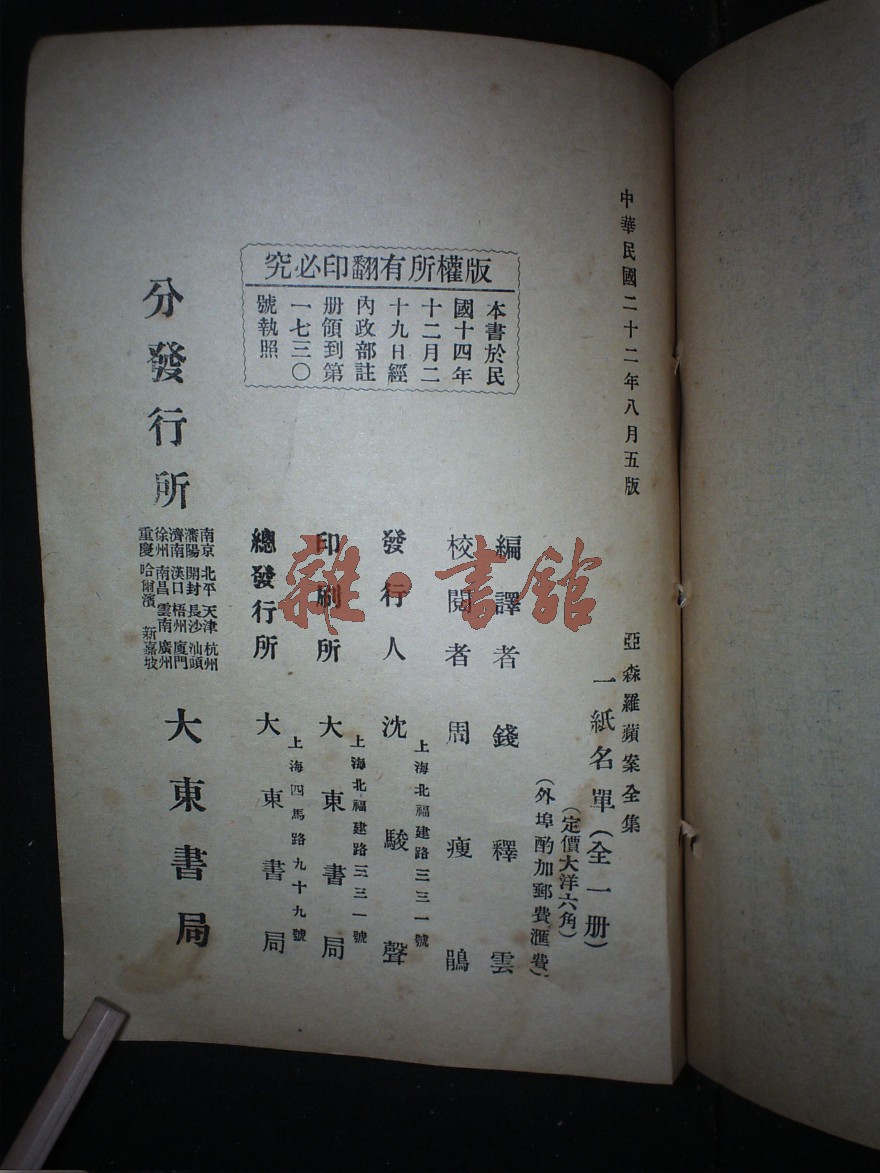 中華民國二十二年八月五版
亞森羅蘋案全集
一紙名單(全一册)
(定價大洋六角)
(外埠酌加郵費匯費)
編譯者 錢釋雲
校閱者 周瘦鵑
發行人 沈駿聲
上海北福建路三三一號
印刷所 大東書局
上海北福建路三三一號
總發行所 大東書局
上海四馬路九十九號
版權所有翻印必究
本書於民
國十四年
十二月二
十九日經
內政部註
册領到第
一七三〇
號執照
分發行所
南京 北平 天津 杭州
瀋陽 開封 長沙 汕頭
濟南 漢口 梧州 廈門
徐州 南昌 雲南 廣州
重慶 哈爾濱 新嘉坡
大東書局
雜·書館